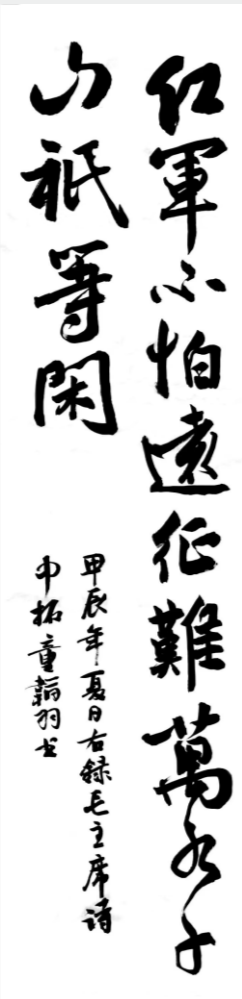 紅軍不怕遠征難萬水千
山祇等閑
甲辰年夏日右録毛主席詩
中拓童韜羽书